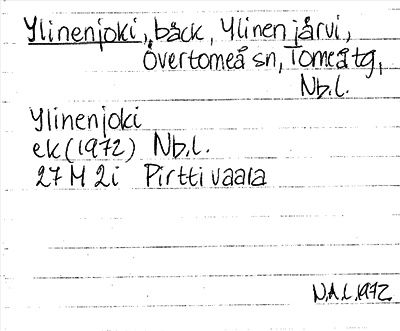 Ylinenjoki, bäck, Ylinen järvi,
Övertorneå sn, Torneå tg,
Nb.l.
Ylinenjoki
ek (1972) Nb.l.
27 M 2i Pirttivaara
N.Å.L. 1972